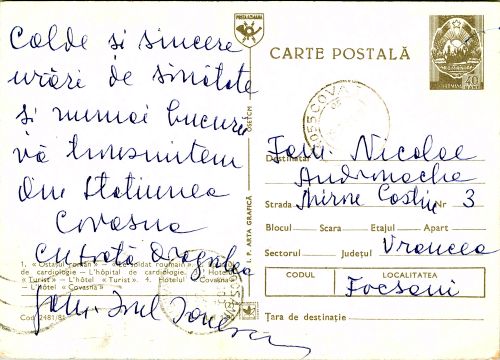 Calde si sincere
urări de sănătate
si numai bucurii
vă transmitem
din Statiunea
Covasna
cu toată dragostea
Fam. Ionel Ionescu
1. « Ostașul român » — « Le soldat roumain ».
de cardiologie — L'hôpital de cardiologie. 3. Hotel
« Turist » — L'hôtel « Turist ». 4. Hotelul « Covasna »
L'hôtel « Covasna »
Cod 2481/8
I. P. ARTA GRAFICĂ
POSTA ROMANA
CARTE POSTALĂ
40
COVASNA
Destinatar Fam. Nicolae
Andronache
Strada Miron Costin Nr 3
Blocul Scara Etajul Apart
Sectorul Județul Vrancea
CODUL
LOCALITATEA
Focsani
Țara de destinație